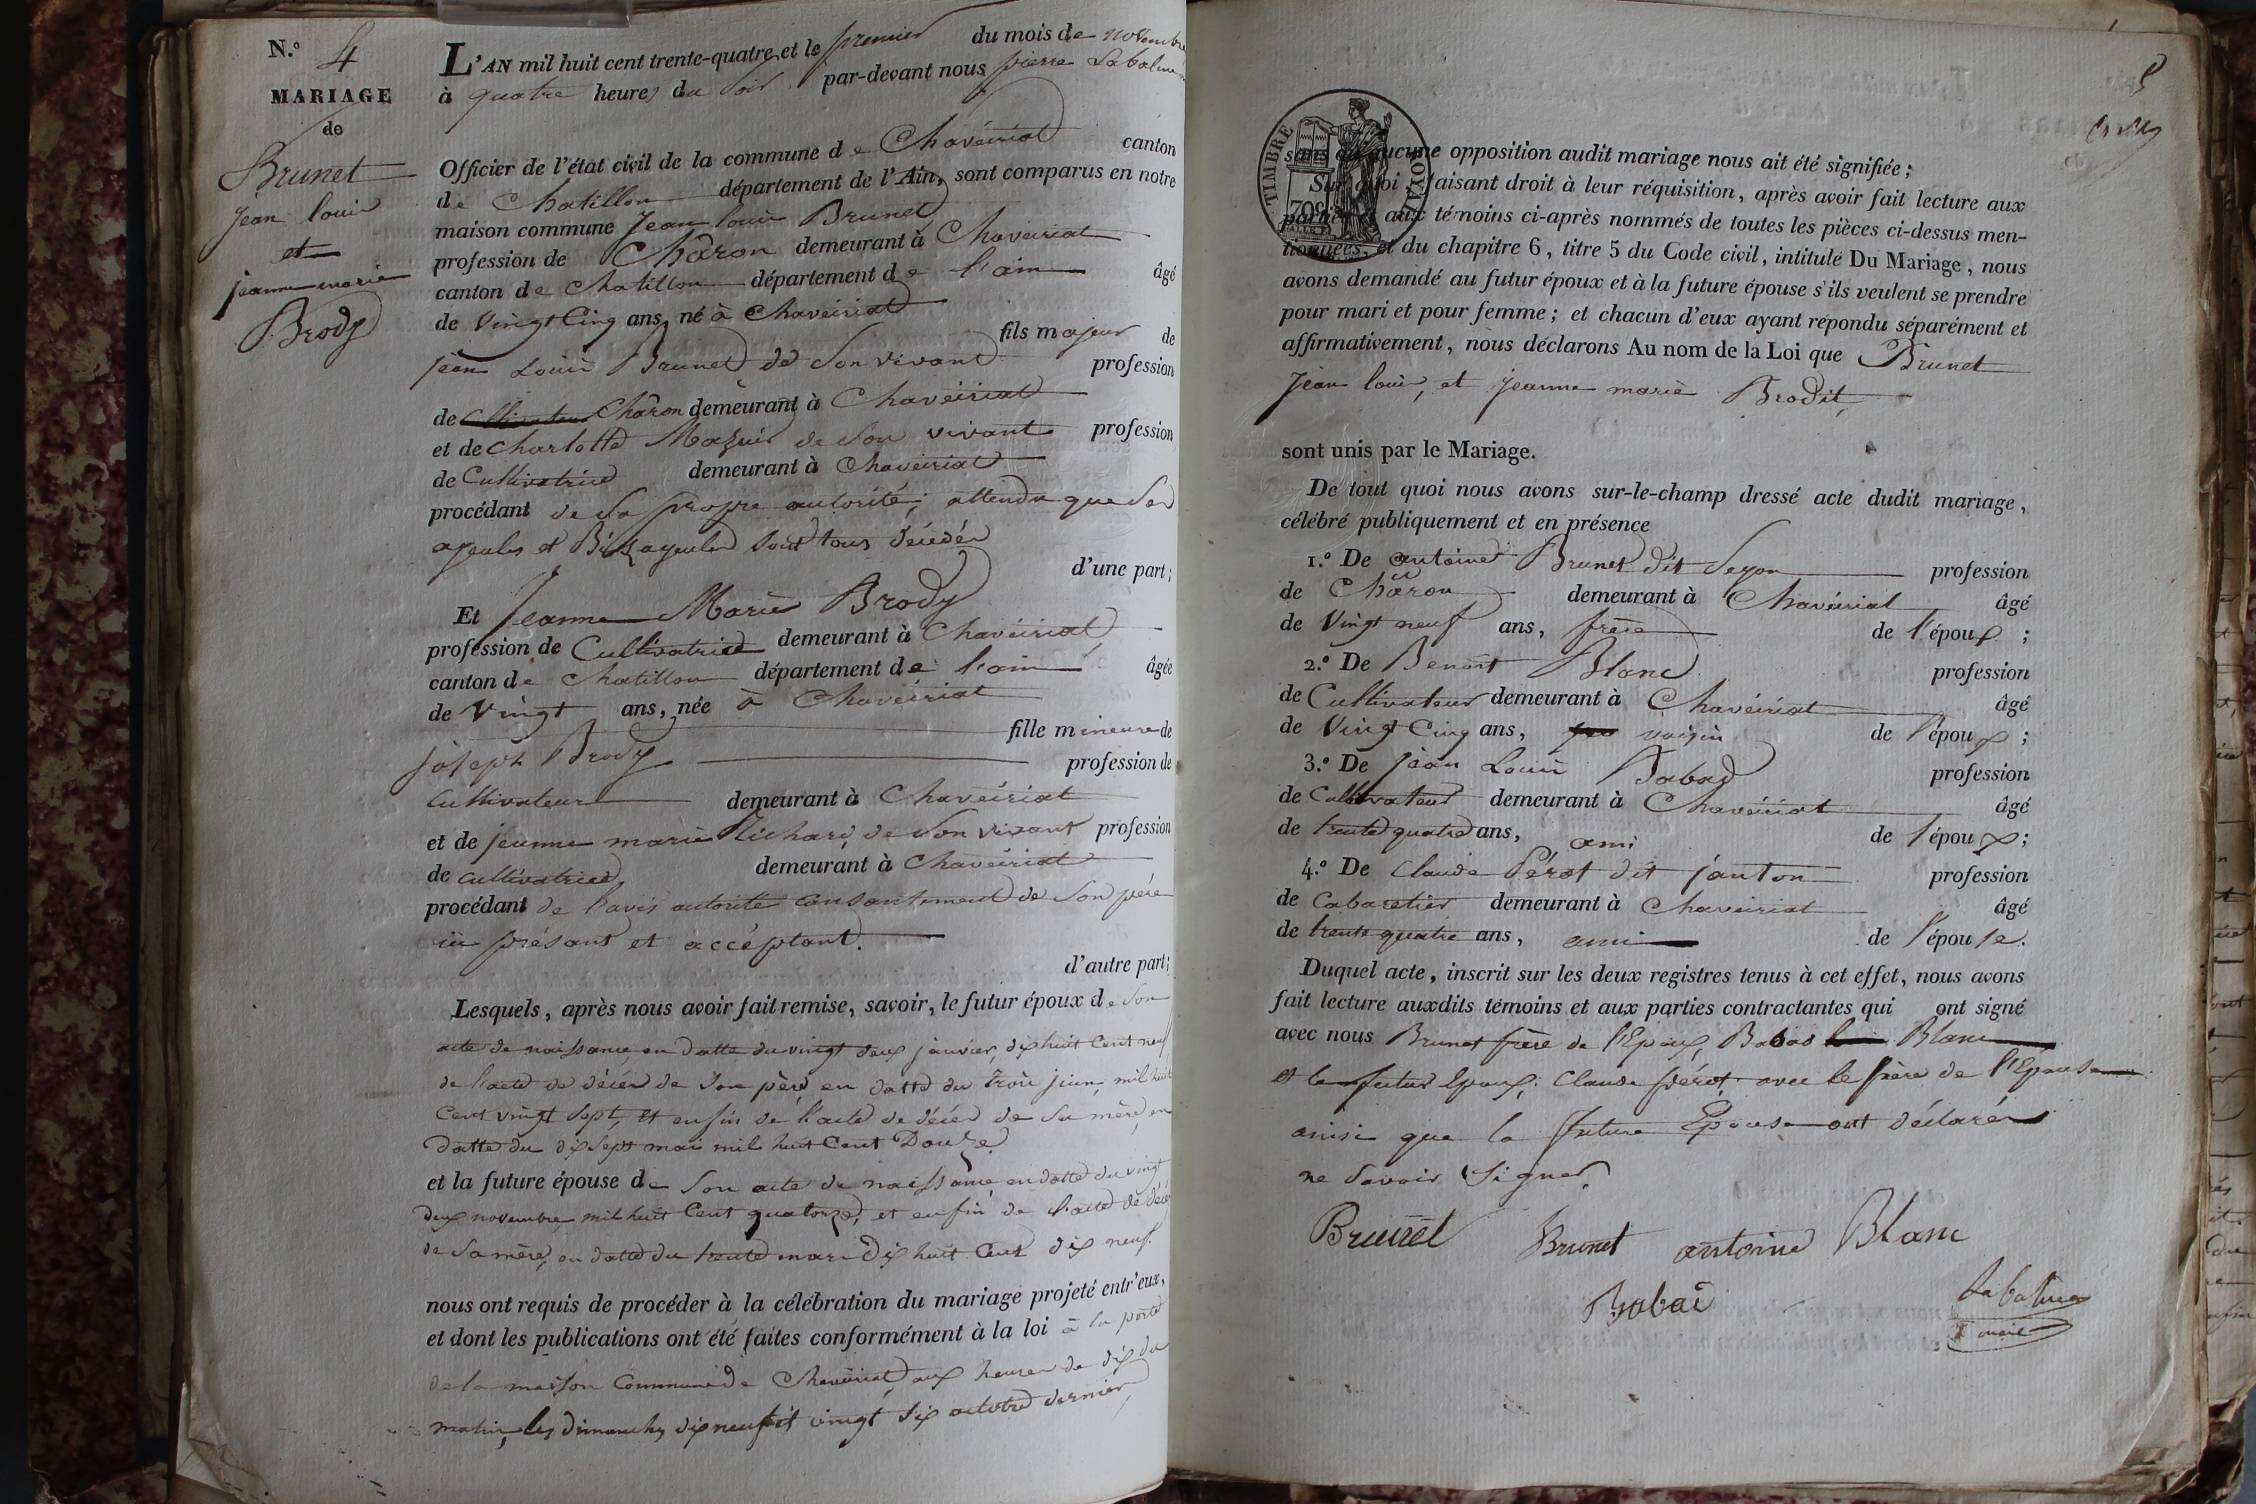 N.º 4
MARIAGE
de
Brunet
jean louis
et
jeanne marie
Brody
L'AN mil huit cent trente-quatre et le premier du mois de novembre
à quatre heures du soir par-devant nous pierre Labalme
Officier de l'état civil de la commune de Chaveiriat canton
de Chatillon département de l'Ain, sont comparus en notre
maison commune Jean louis Brunet
profession de Chäron demeurant à Chaveiriat
canton de Chatillon département de l'ain âgé
de Vingt Cinq ans, né à Chaveiriat
fils majeur de
jean Louis Brunet de son vivant profession
de Cultivateur Châron demeurant à Chavéiriat
et de Charlotte Mazuir de son vivant profession
de Cultivatrice demeurant à Chaveiriat
procédant de sa propre autorité; attendu que ses
ayeules et Bizayeules sont tous décédés
d'une part;
Et Jeanne Marie Brody
profession de Cultivatrice demeurant à Chavéiriat,
canton de Chatillon département de l'ain âgée
de Vingt ans, née à Chavéiriat
fille mineure de
joseph Brody profession de
Cultivateur demeurant à Chavéiriat
et de jeanne marie Richard, de son vivant profession
de cultivatrice, demeurant à Chavéiriat
procédant de l'avis autorité consantement de son père
ici présant et accéptant.
d'autre part;
Lesquels, après nous avoir fait remise, savoir, le futur époux de son
acte de naissance en datte du vingt deux janvier, dix huit Cent neuf
de l'acte de décès de son père, en datte du trois juin, mil huit
Cent vingt sept, et enfin de l'acte de décès de sa mère, en
datte du dix sept mai mil huit Cent Douze.
et la future épouse de son acte de naissance en datte du vingt
deux novembre mil huit Cent quatorze, et enfin de l'acte de décès
de sa mère, en datte du trente mars dix huit Cent dix neuf.
nous ont requis de procéder à la célébration du mariage projeté entr'eux,
et dont les publications ont été faites conformément à la loi à la porte
de la maison Commune de Chavéiriat, aux heures de dix du
matin, les dimanches dix neuf et vingt six octobre dernier,
5
TIMBRE ROYAL
70c
sans qu'aucune opposition audit mariage nous ait été signifiée;
Sur quoi faisant droit à leur réquisition, après avoir fait lecture aux
parties et aux témoins ci-après nommés de toutes les pièces ci-dessus men-
tionnées, et du chapitre 6, titre 5 du Code civil, intitulé Du Mariage, nous
avons demandé au futur époux et à la future épouse s'ils veulent se prendre
pour mari et pour femme; et chacun d'eux ayant répondu séparément et
affirmativement, nous déclarons Au nom de la Loi que Brunet
Jean louis, et jeanne marie Brodit,
sont unis par le Mariage.
De tout quoi nous avons sur-le-champ dressé acte dudit mariage,
célébré publiquement et en présence
1.º De antoine Brunet dit Seyon profession
de Chäron demeurant à Chavéiriat âgé
de Vingt neuf ans, frère de l'époux;
2.º De Benoit Blanc profession
de Cultivateur demeurant à Chavéiriat âgé
de Vingt Cinq ans, voisin de l'époux;
3.º De jean Louis Babad profession
de Cultivateur demeurant à Chavéiriat âgé
de trente quatre ans, ami de l'époux;
4.º De Claude Pérot dit janton profession
de Cabaretier demeurant à Chaveiriat âgé
de trente quatre ans, ami de l'épouse.
Duquel acte, inscrit sur les deux registres tenus à cet effet, nous avons
fait lecture auxdits témoins et aux parties contractantes qui ont signé
avec nous Brunet frère de l'Epoux, Babad Blanc
et le futur Epoux; Claude pérot avec le père de l'Epouse
ainsi que la future Epouse ont déclarés
ne savoir signer.
Brunet Brunet antoine Blanc
Babad
Labalme
maire